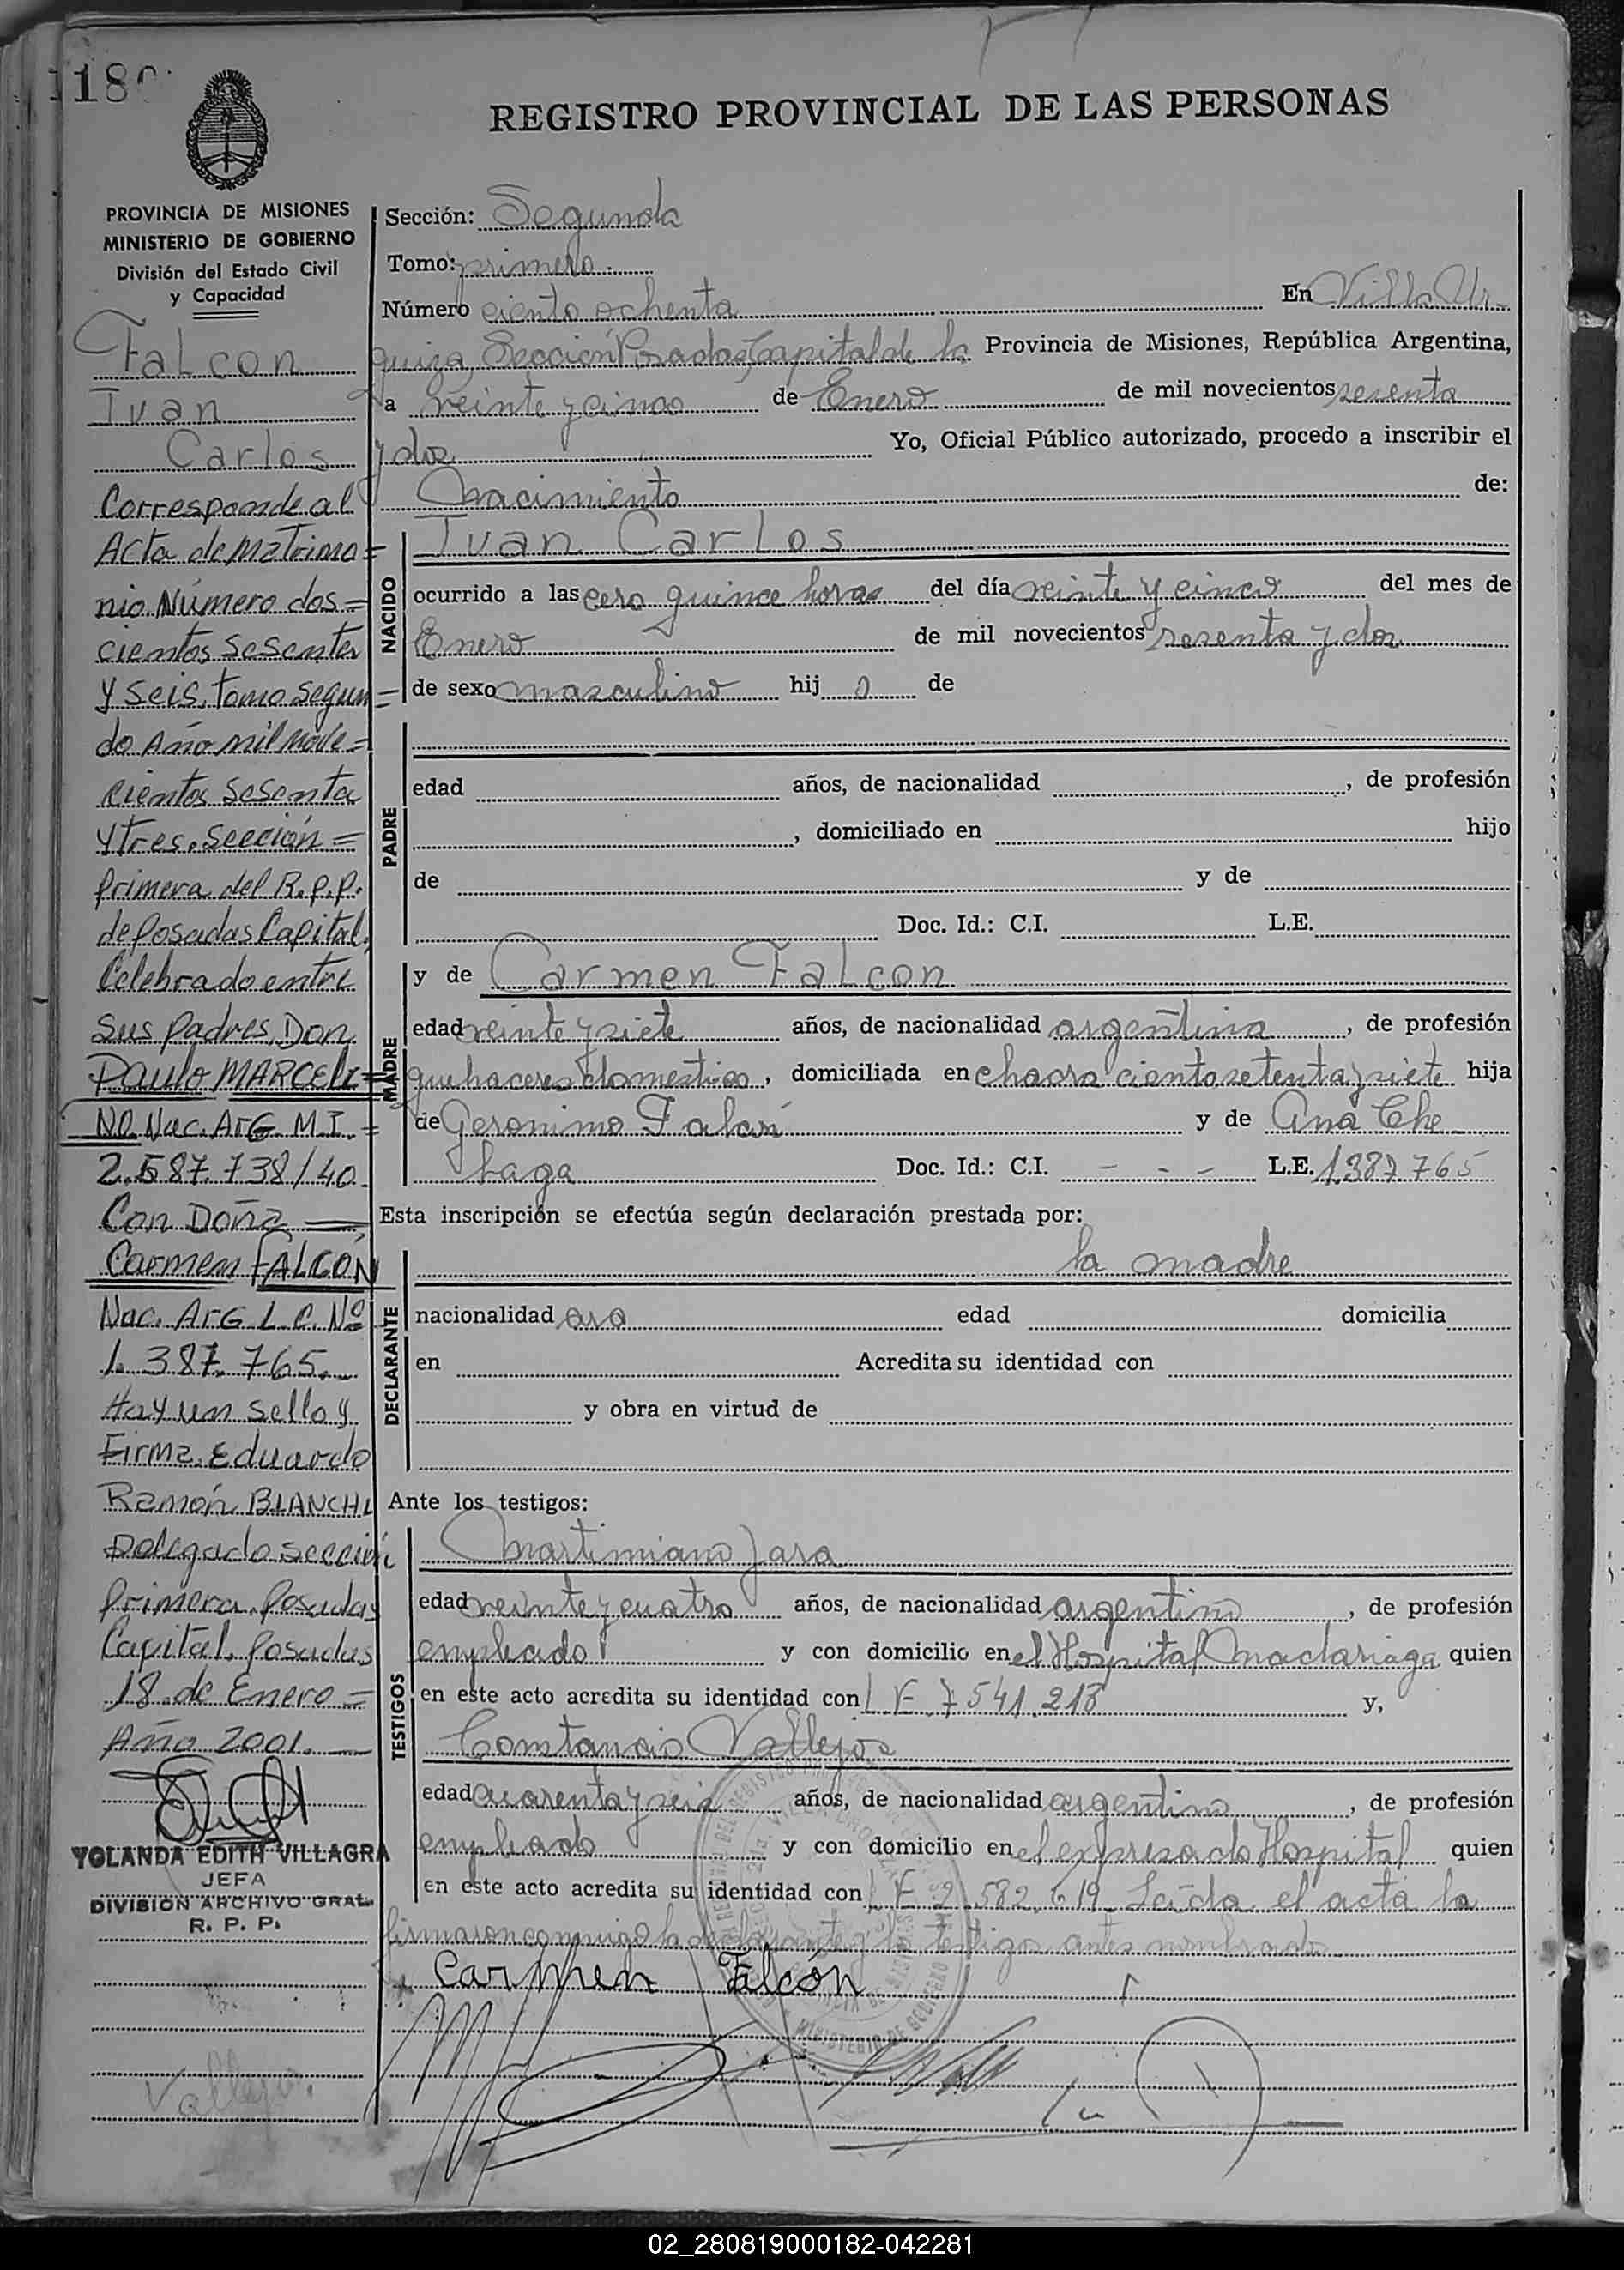 180
REGISTRO PROVINCIAL DE LAS PERSONAS
PROVINCIA DE MISIONES
MINISTERIO DE GOBIERNO
División del Estado Civil
y Capacidad
Falcon
Ivan
Carlos
Corresponde al
Acta de Matrimo=
nio Número dos=
cientos sesenta
y seis, tomo segun=
do Año mil nove=
cientos sesenta
y tres. Sección=
primera del R.P.P.
de Posadas Capital,
Celebrado entre
Sus padres, Don
Paulo MARCELI=
NO Nac. ArG. M.I.=
2.587.738/40.
Con Doña
Carmen FALCÓN
Nac. ArG L.C. Nº
1.387.765.
Hay un sello y
Firma. Eduardo
Ramón BIANCHI
Delegado sección
primera. Posadas
Capital. Posadas
18 de Enero=
Año 2001.
YOLANDA EDITH VILLAGRA
JEFA
DIVISION ARCHIVO GRAL.
R. P. P.
Vallejo.
Sección: Segunda
Tomo: primero
Número ciento ochenta En Villa Ur-
quiza, Sección Posadas, Capital de la Provincia de Misiones, República Argentina,
a veinte y cinco de Enero de mil novecientos sesenta
y dos Yo, Oficial Público autorizado, procedo a inscribir el
nacimiento de:
NACIDO
Ivan Carlos
ocurrido a las cero quince horas del día veinte y cinco del mes de
Enero de mil novecientos sesenta y dos
de sexo masculino hij o de
PADRE
edad años, de nacionalidad , de profesión
, domiciliado en hijo
de y de
Doc. Id.: C.I. L.E.
MADRE
y de Carmen Falcon
edad veinte y siete años, de nacionalidad argentina , de profesión
quehaceres domestico, domiciliada en chacra ciento setenta y siete hija
de Geronimo Falcón y de Ana Che
baga Doc. Id.: C.I. - - - L.E. 1.387765
Esta inscripción se efectúa según declaración prestada por:
DECLARANTE
la madre
nacionalidad edad domicilia
en Acredita su identidad con
y obra en virtud de
Ante los testigos:
TESTIGOS
Martimiano Jara
edad veinte y cuatro años, de nacionalidad argentino , de profesión
empleado y con domicilio en el Hospital Madariaga quien
en este acto acredita su identidad con L E 7541.218 y,
Constancio Vallejos
edad cuarenta y seis años, de nacionalidad argentino , de profesión
empleado y con domicilio en el expresado Hospital quien
en este acto acredita su identidad con L E 2.582.619 Leída el acta la
firmaron conmigo la declarante y los testigos antes nombrados
Carmen Falcón
MINISTERIO DE GOBIERNO
02_280819000182-042281